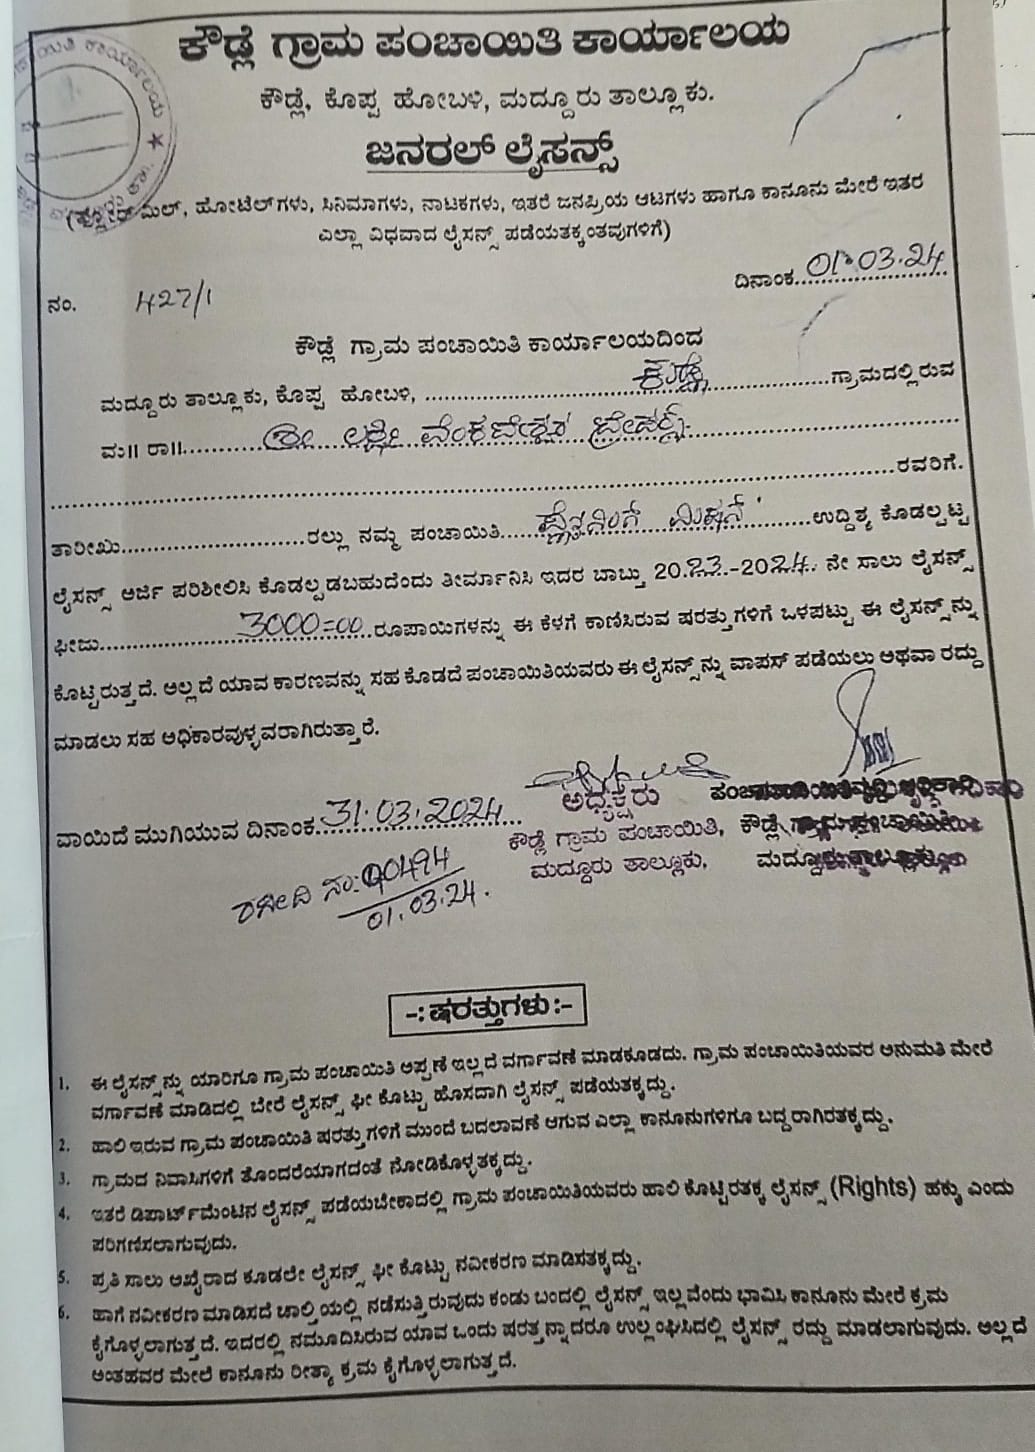 ಕೌಡ್ಲೆ ಗ್ರಾಮ ಪಂಚಾಯಿತಿ ಕಾರ್ಯಾಲಯ
ಕೌಡ್ಲೆ, ಕೊಪ್ಪ ಹೋಬಳಿ, ಮದ್ದೂರು ತಾಲ್ಲೂಕು.
ಜನರಲ್ ಲೈಸನ್ಸ್
(ಫ್ಲೋರ್ ಮಿಲ್, ಹೋಟೆಲ್‌ಗಳು, ಸಿನಿಮಾಗಳು, ನಾಟಕಗಳು, ಇತರೆ ಜನಪ್ರಿಯ ಆಟಗಳು ಹಾಗೂ ಕಾನೂನು ಮೇರೆ ಇತರ
ಎಲ್ಲಾ ವಿಧವಾದ ಲೈಸನ್ಸ್ ಪಡೆಯತಕ್ಕಂತವುಗಳಿಗೆ)
ದಿನಾಂಕ 01.03.24
ನಂ. 427/1
ಕೌಡ್ಲೆ ಗ್ರಾಮ ಪಂಚಾಯಿತಿ ಕಾರ್ಯಾಲಯದಿಂದ
ಮದ್ದೂರು ತಾಲ್ಲೂಕು, ಕೊಪ್ಪ ಹೋಬಳಿ, ಗ್ರಾಮದಲ್ಲಿರುವ
ಮ॥ ರಾ॥ ಶ್ರೀ ಲಕ್ಷ್ಮೀ ವೆಂಕಟೇಶ್ವರ
ರವರಿಗೆ.
ತಾರೀಖು ರಲ್ಲು ನಮ್ಮ ಪಂಚಾಯಿತಿ ಉದ್ದಿಶ್ಯ ಕೊಡಲ್ಪಟ್ಟ
ಲೈಸನ್ಸ್ ಅರ್ಜಿ ಪರಿಶೀಲಿಸಿ ಕೊಡಲ್ಪಡಬಹುದೆಂದು ತೀರ್ಮಾನಿಸಿ ಇದರ ಬಾಬ್ತು 2023-2024 ನೇ ಸಾಲು ಲೈಸನ್ಸ್
ಫೀಜು 3000=00 ರೂಪಾಯಿಗಳನ್ನು ಈ ಕೆಳಗೆ ಕಾಣಿಸಿರುವ ಷರತ್ತುಗಳಿಗೆ ಒಳಪಟ್ಟು ಈ ಲೈಸನ್ಸ್‌ನ್ನು
ಕೊಟ್ಟಿರುತ್ತದೆ. ಅಲ್ಲದೆ ಯಾವ ಕಾರಣವನ್ನು ಸಹ ಕೊಡದೆ ಪಂಚಾಯಿತಿಯವರು ಈ ಲೈಸನ್ಸ್‌ನ್ನು ವಾಪಸ್ ಪಡೆಯಲು ಅಥವಾ ರದ್ದು
ಮಾಡಲು ಸಹ ಅಧಿಕಾರವುಳ್ಳವರಾಗಿರುತ್ತಾರೆ.
ವಾಯಿದೆ ಮುಗಿಯುವ ದಿನಾಂಕ 31.03.2024
ಅಧ್ಯಕ್ಷರು
ಕೌಡ್ಲೆ ಗ್ರಾಮ ಪಂಚಾಯಿತಿ, ಕೌಡ್ಲೆ ಗ್ರಾಮ ಪಂಚಾಯಿತಿ
ಮದ್ದೂರು ತಾಲ್ಲೂಕು, ಮದ್ದೂರು ತಾಲ್ಲೂಕು
ರಶೀದಿ ಸಂ: 00494
01.03.24.
-: ಷರತ್ತುಗಳು :-
1. ಈ ಲೈಸನ್ಸ್‌ನ್ನು ಯಾರಿಗೂ ಗ್ರಾಮ ಪಂಚಾಯಿತಿ ಅಪ್ಪಣೆ ಇಲ್ಲದೆ ವರ್ಗಾವಣೆ ಮಾಡಕೂಡದು. ಗ್ರಾಮ ಪಂಚಾಯಿತಿಯವರ ಅನುಮತಿ ಮೇರೆ
ವರ್ಗಾವಣೆ ಮಾಡಿದಲ್ಲಿ ಬೇರೆ ಲೈಸನ್ಸ್ ಫೀ ಕೊಟ್ಟು ಹೊಸದಾಗಿ ಲೈಸನ್ಸ್ ಪಡೆಯತಕ್ಕದ್ದು.
2. ಹಾಲಿ ಇರುವ ಗ್ರಾಮ ಪಂಚಾಯಿತಿ ಷರತ್ತುಗಳಿಗೆ ಮುಂದೆ ಬದಲಾವಣೆ ಆಗುವ ಎಲ್ಲಾ ಕಾನೂನುಗಳಿಗೂ ಬದ್ದರಾಗಿರತಕ್ಕದ್ದು.
3. ಗ್ರಾಮದ ನಿವಾಸಿಗಳಿಗೆ ತೊಂದರೆಯಾಗದಂತೆ ನೋಡಿಕೊಳ್ಳತಕ್ಕದ್ದು.
4. ಇತರೆ ಡಿಪಾರ್ಟ್‌ಮೆಂಟಿನ ಲೈಸನ್ಸ್ ಪಡೆಯಬೇಕಾದಲ್ಲಿ ಗ್ರಾಮ ಪಂಚಾಯಿತಿಯವರು ಹಾಲಿ ಕೊಟ್ಟಿರತಕ್ಕ ಲೈಸನ್ಸ್ (Rights) ಹಕ್ಕು ಎಂದು
ಪರಿಗಣಿಸಲಾಗುವುದು.
5. ಪ್ರತಿ ಸಾಲು ಅಖೈರಾದ ಕೂಡಲೇ ಲೈಸನ್ಸ್ ಫೀ ಕೊಟ್ಟು ನವೀಕರಣ ಮಾಡಿಸತಕ್ಕದ್ದು.
6. ಹಾಗೆ ನವೀಕರಣ ಮಾಡಿಸದೆ ಚಾಲ್ತಿಯಲ್ಲಿ ನಡೆಸುತ್ತಿರುವುದು ಕಂಡು ಬಂದಲ್ಲಿ ಲೈಸನ್ಸ್ ಇಲ್ಲವೆಂದು ಭಾವಿಸಿ ಕಾನೂನು ಮೇರೆ ಕ್ರಮ
ಕೈಗೊಳ್ಳಲಾಗುತ್ತದೆ. ಇದರಲ್ಲಿ ನಮೂದಿಸಿರುವ ಯಾವ ಒಂದು ಷರತ್ತನ್ನಾದರೂ ಉಲ್ಲಂಘಿಸಿದಲ್ಲಿ ಲೈಸನ್ಸ್ ರದ್ದು ಮಾಡಲಾಗುವುದು. ಅಲ್ಲದೆ
ಅಂತಹವರ ಮೇಲೆ ಕಾನೂನು ರೀತ್ಯಾ ಕ್ರಮ ಕೈಗೊಳ್ಳಲಾಗುತ್ತದೆ.